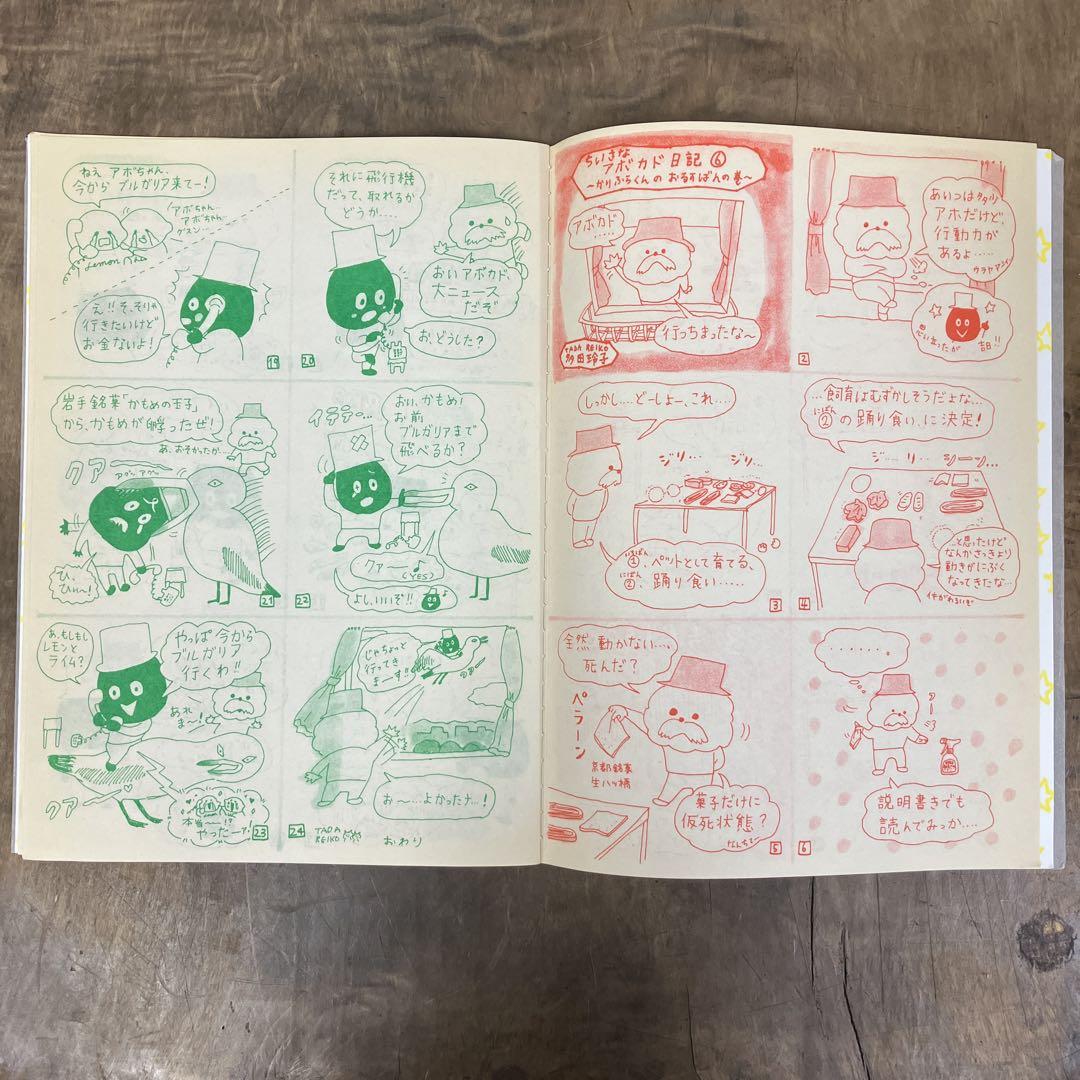 ねぇ、アボちゃん、
今から ブルガリア来てー!
アボちゃん…
アボちゃん…
グスン…
え!!そ、そりゃ
行きたいけど
お金ないよ!
19
それに飛行機
だって、取れるか
どうか……
おいアボカド、
大ニュース
だぞ
お、どうした?
20
岩手銘菓「かもめの玉子」
から、かもめが孵ったぜ!
あ、おそかったか…
クアー
ひ、
ひぃ〜!
21
イテテー…
おい、かもめ!
お前
ブルガリアまで
飛べるか?
クァー
(YES)
よし、いいぞ!!
22
あ、もしもし
レモンと
ライム?
やっぱ 今から
ブルガリア
行くわ!!
あれ
まー!
クアー
本当〜!?
やったーァ!
23
じゃちょっと
行ってき
まーす!!
お〜…よかったナ…!
24
TADA
REIKO
おわり
ちいさな
アボカド日記⑥
〜かりふらくんの おるすばんの巻〜
アボカド
……
行っちまったな〜
TADA REIKO
多田玲子
あいつは多少
アホだけど、
行動力が
あるよ……
ウラヤマシイ
思い立ったが
吉日!!
2
しっかし…どーしよー、これ…
ジリ… ジリ…
①、ペットとして育てる、
②、踊り食い……
3
…飼育はむずかしそうだよな…
②の踊り食い、に決定!
ジ…リ… シーン…
…と思ったけど
なんかさっきより
動きがにぶく
なってきたな…
4
全然、動かない…、
死んだ?
ペラーン
京都銘菓
生八ッ橋
菓子だけに
仮死状態?
なんちて〜
5
・・・・・・。
説明書きでも
読んでみっか…
6